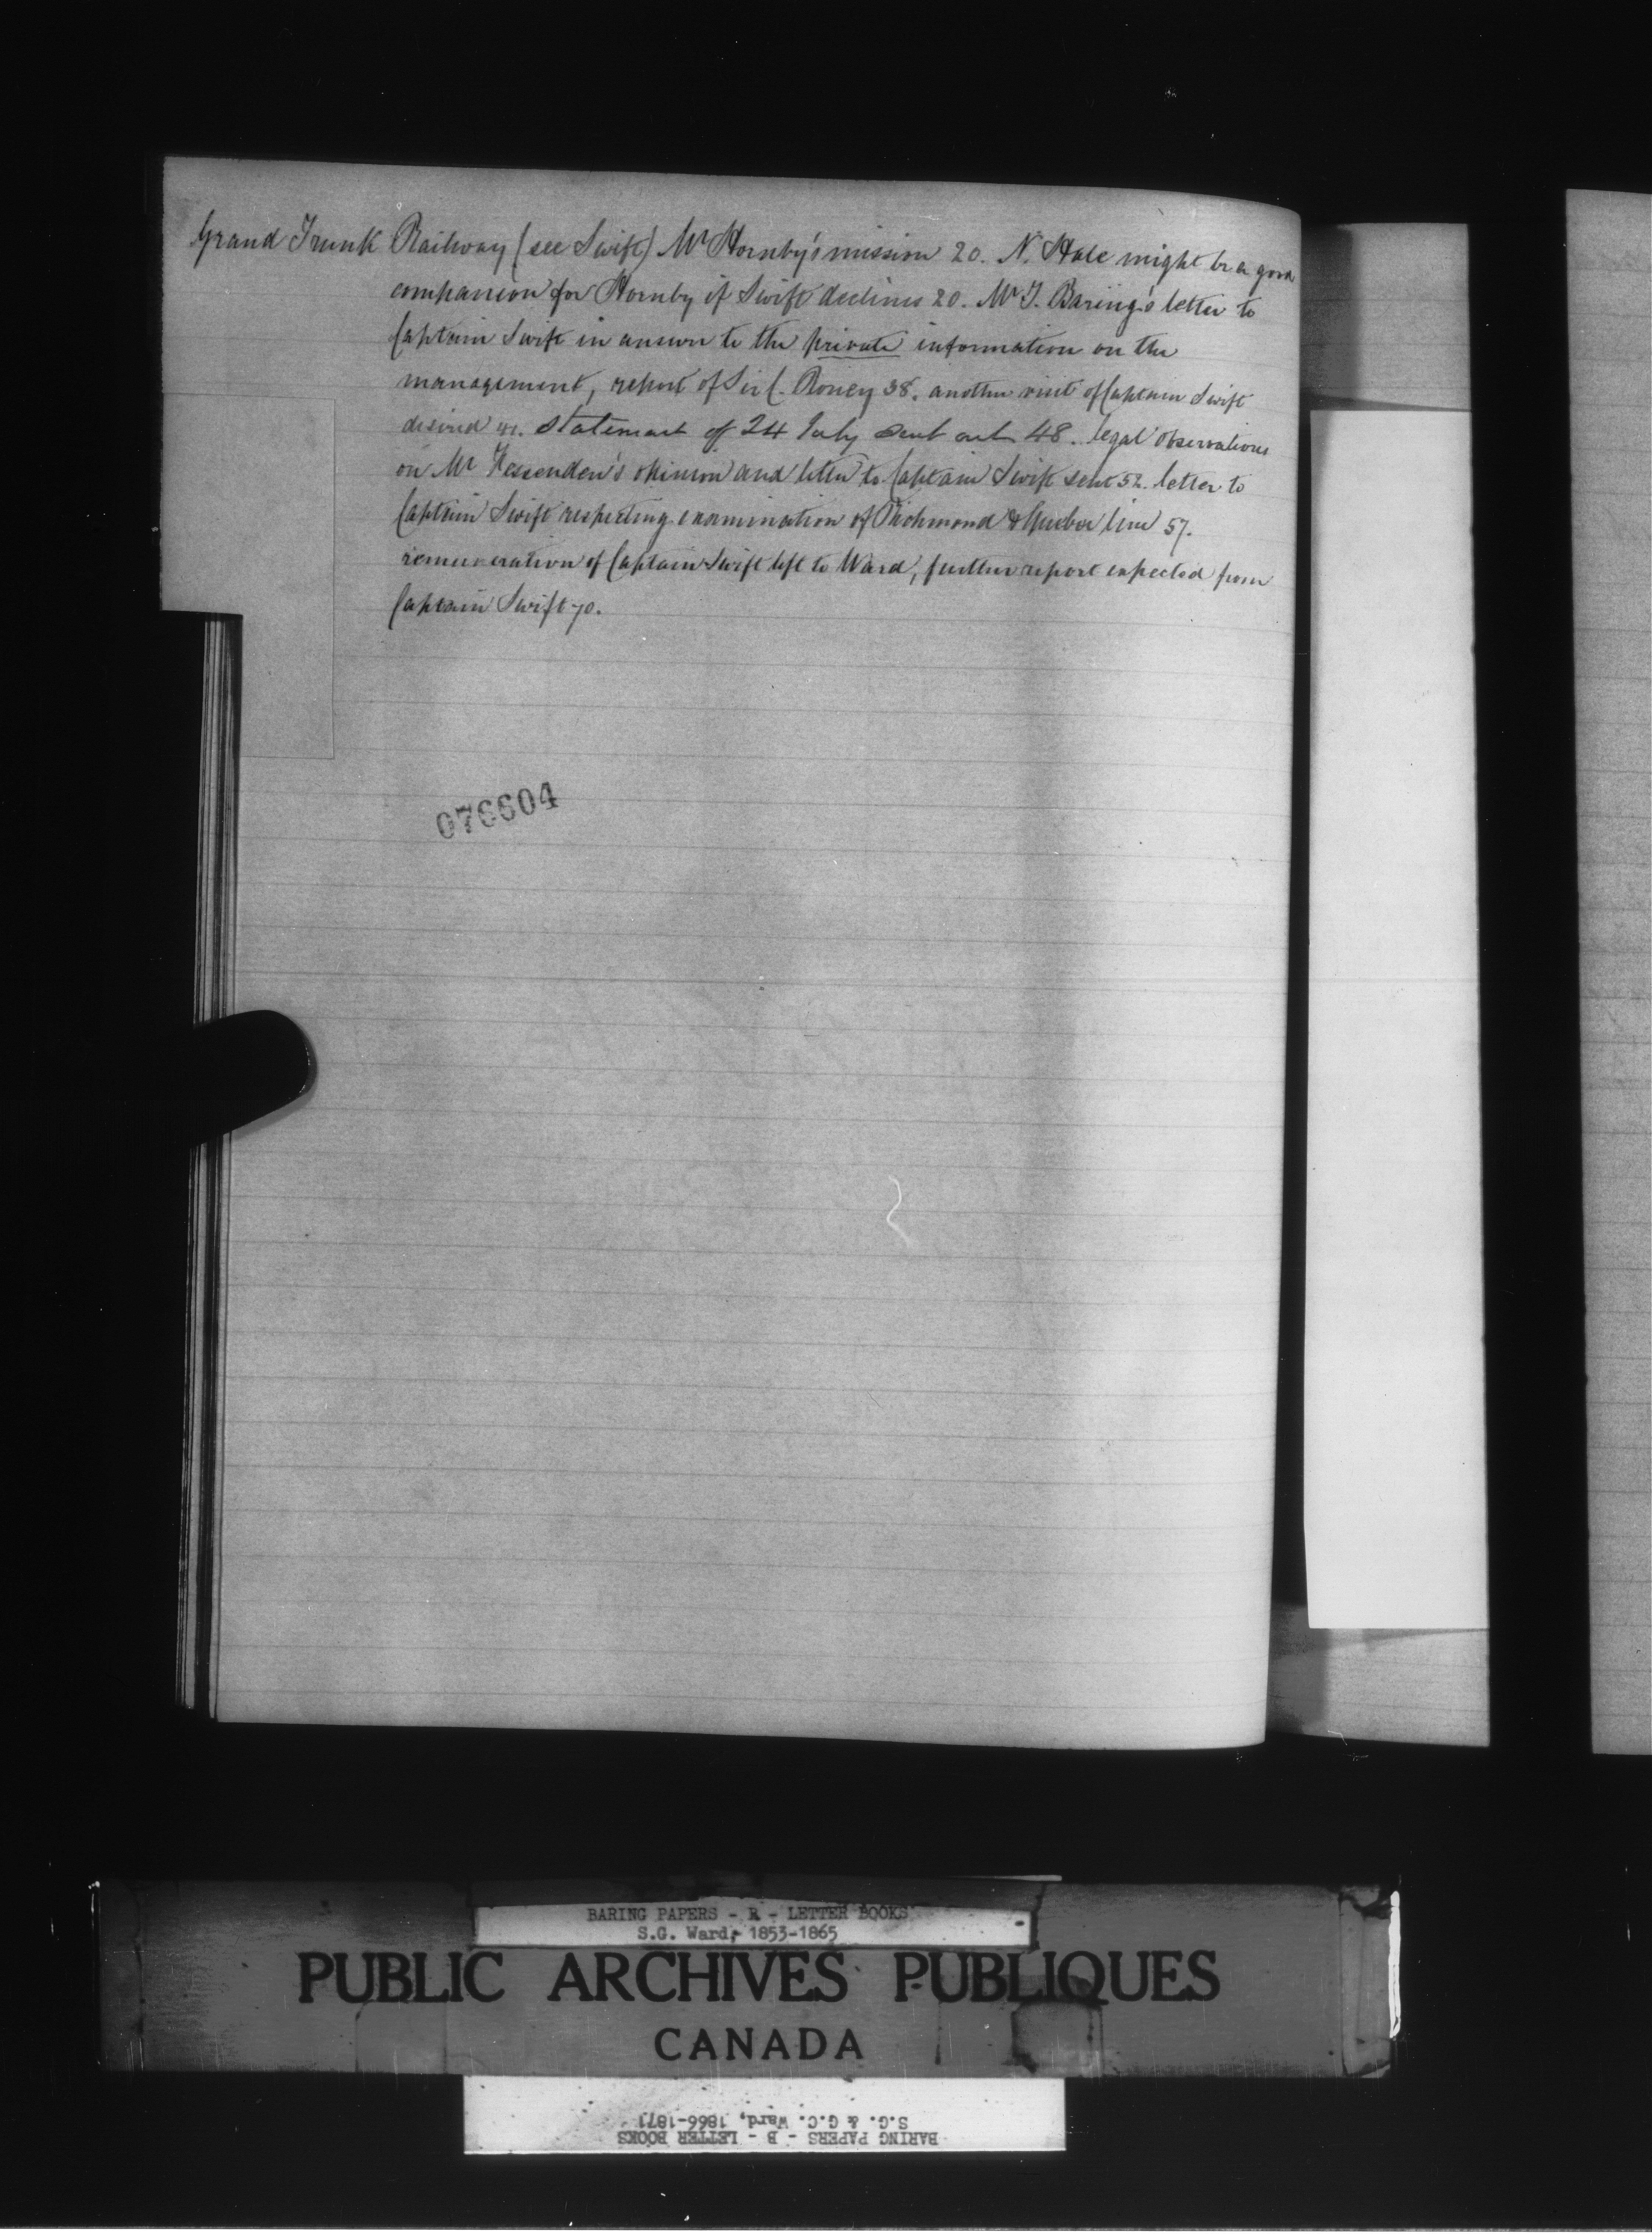 Grand Trunk Railway (see Swift) Mr Hornby's mission 20. N. Hale might be a good
companion for Hornby if Swift declines 20. Mr T. Baring's letter to
Captain Swift in answer to the private information on the
management, report of Sir C. Roney 38. another visit of Captain Swift
desired 41. Statement of 24 July sent out 48. legal observations
on Mr Fessenden's opinion and letter to Captain Swift sent 52. letter to
Captain Swift respecting examination of Richmond & Quebec line 57.
remuneration of Captain Swift left to Ward, further report expected from
Captain Swift 70.
076604
BARING PAPERS - B - LETTER BOOKS
S.G. Ward, 1853-1865
PUBLIC ARCHIVES PUBLIQUES
CANADA
BARING PAPERS - B - LETTER BOOKS
S.G. & G.C. Ward, 1866-1871